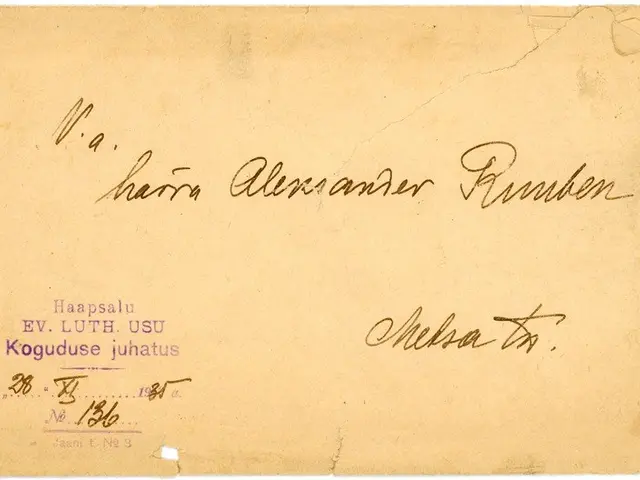 V. a.
härra Aleksander Ruuben
Metsa tn.
Haapsalu
EV. LUTH. USU
Koguduse juhatus
„28" XI 1935 a.
№ 136
Jaani t. № 3